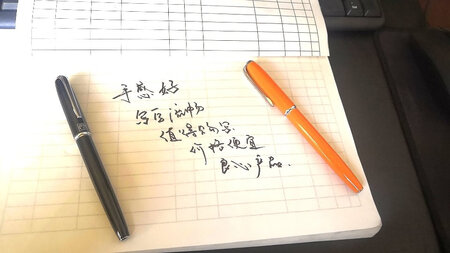 手感好
书写流畅
值得购买
价格便宜
良心产品.